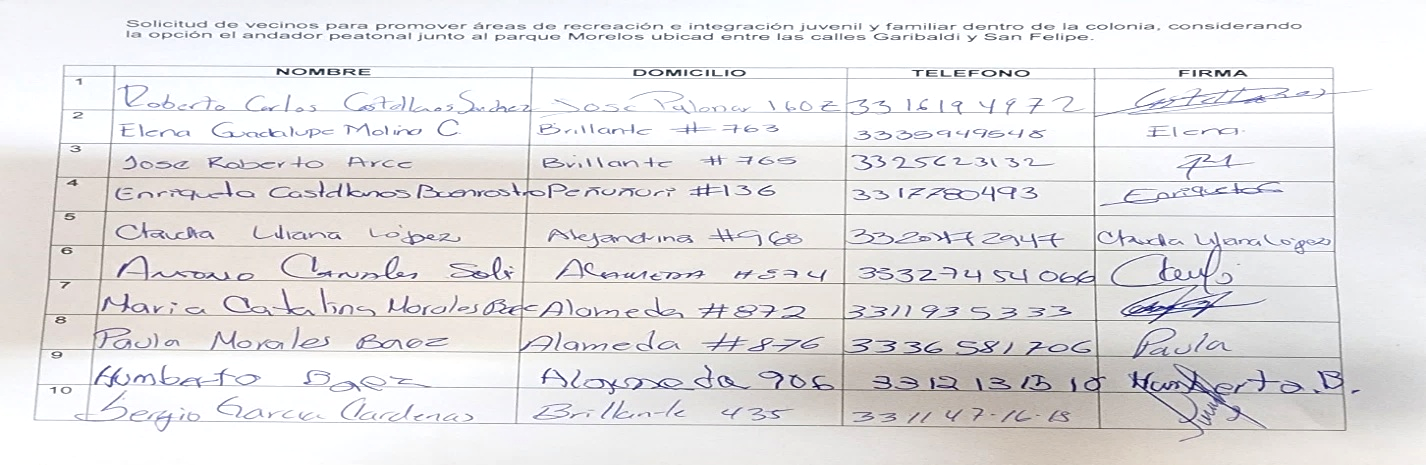 Solicitud de vecinos para promover áreas de recreación e integración juvenil y familiar dentro de la colonia, considerando
la opción el andador peatonal junto al parque Morelos ubicad entre las calles Garibaldi y San Felipe.
NOMBRE DOMICILIO TELEFONO FIRMA
1 Roberto Carlos Castellanos Sanchez Jose Palomar 160 Z 3316194972
2 Elena Guadalupe Molina C Brillante #763 3335949548 Elena
3 Jose Roberto Arce Brillante #765 3325623132
4 Enriqueta Castellanos Buenrostro Peñuñuri #136 3317780493
5 Claudia Liliana López Alejandrina #968 Claudia Liliana López
6 Alameda #874 33327454066
7 Maria Catalina Morales Baez Alameda #872 3311935333
8 Paula Morales Baez Alameda #876 3336581706 Paula
9 Humberto Baez Alameda 906 Humberto B.
10 Sergio Garcia Cardenas Brillante 435 331147-16-18